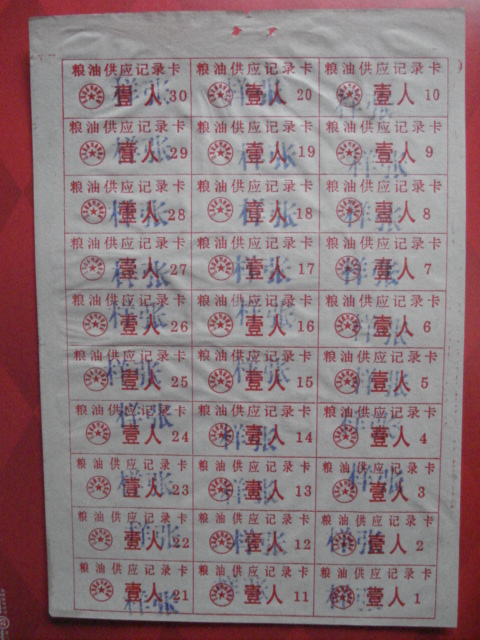 粮油供应记录卡 粮油供应记录卡 粮油供应记录卡
壹人30 壹人20 壹人10
样张 样张 样张
粮油供应记录卡 粮油供应记录卡 粮油供应记录卡
壹人29 壹人19 壹人9
样张 样张 样张
粮油供应记录卡 粮油供应记录卡 粮油供应记录卡
壹人28 壹人18 壹人8
样张 样张 样张
粮油供应记录卡 粮油供应记录卡 粮油供应记录卡
壹人27 壹人17 壹人7
样张 样张 样张
粮油供应记录卡 粮油供应记录卡 粮油供应记录卡
壹人26 壹人16 壹人6
样张 样张 样张
粮油供应记录卡 粮油供应记录卡 粮油供应记录卡
壹人25 壹人15 壹人5
样张 样张 样张
粮油供应记录卡 粮油供应记录卡 粮油供应记录卡
壹人24 壹人14 壹人4
样张 样张 样张
粮油供应记录卡 粮油供应记录卡 粮油供应记录卡
壹人23 壹人13 壹人3
样张 样张 样张
粮油供应记录卡 粮油供应记录卡 粮油供应记录卡
壹人22 壹人12 壹人2
样张 样张 样张
粮油供应记录卡 粮油供应记录卡 粮油供应记录卡
壹人21 壹人11 壹人1
样张 样张 样张